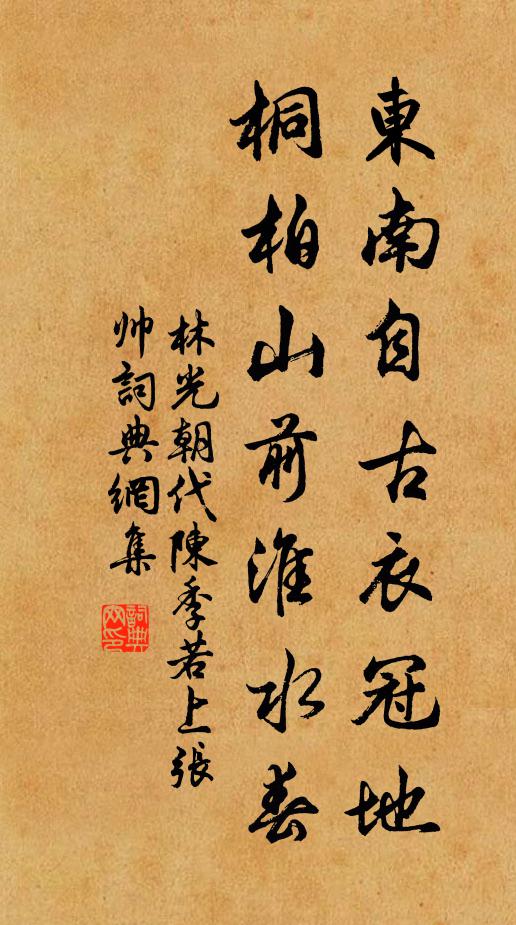 東南自古衣冠地
桐柏山前淮水春
林光朝代陳季若上張
帅詞典網集
詞典
网印